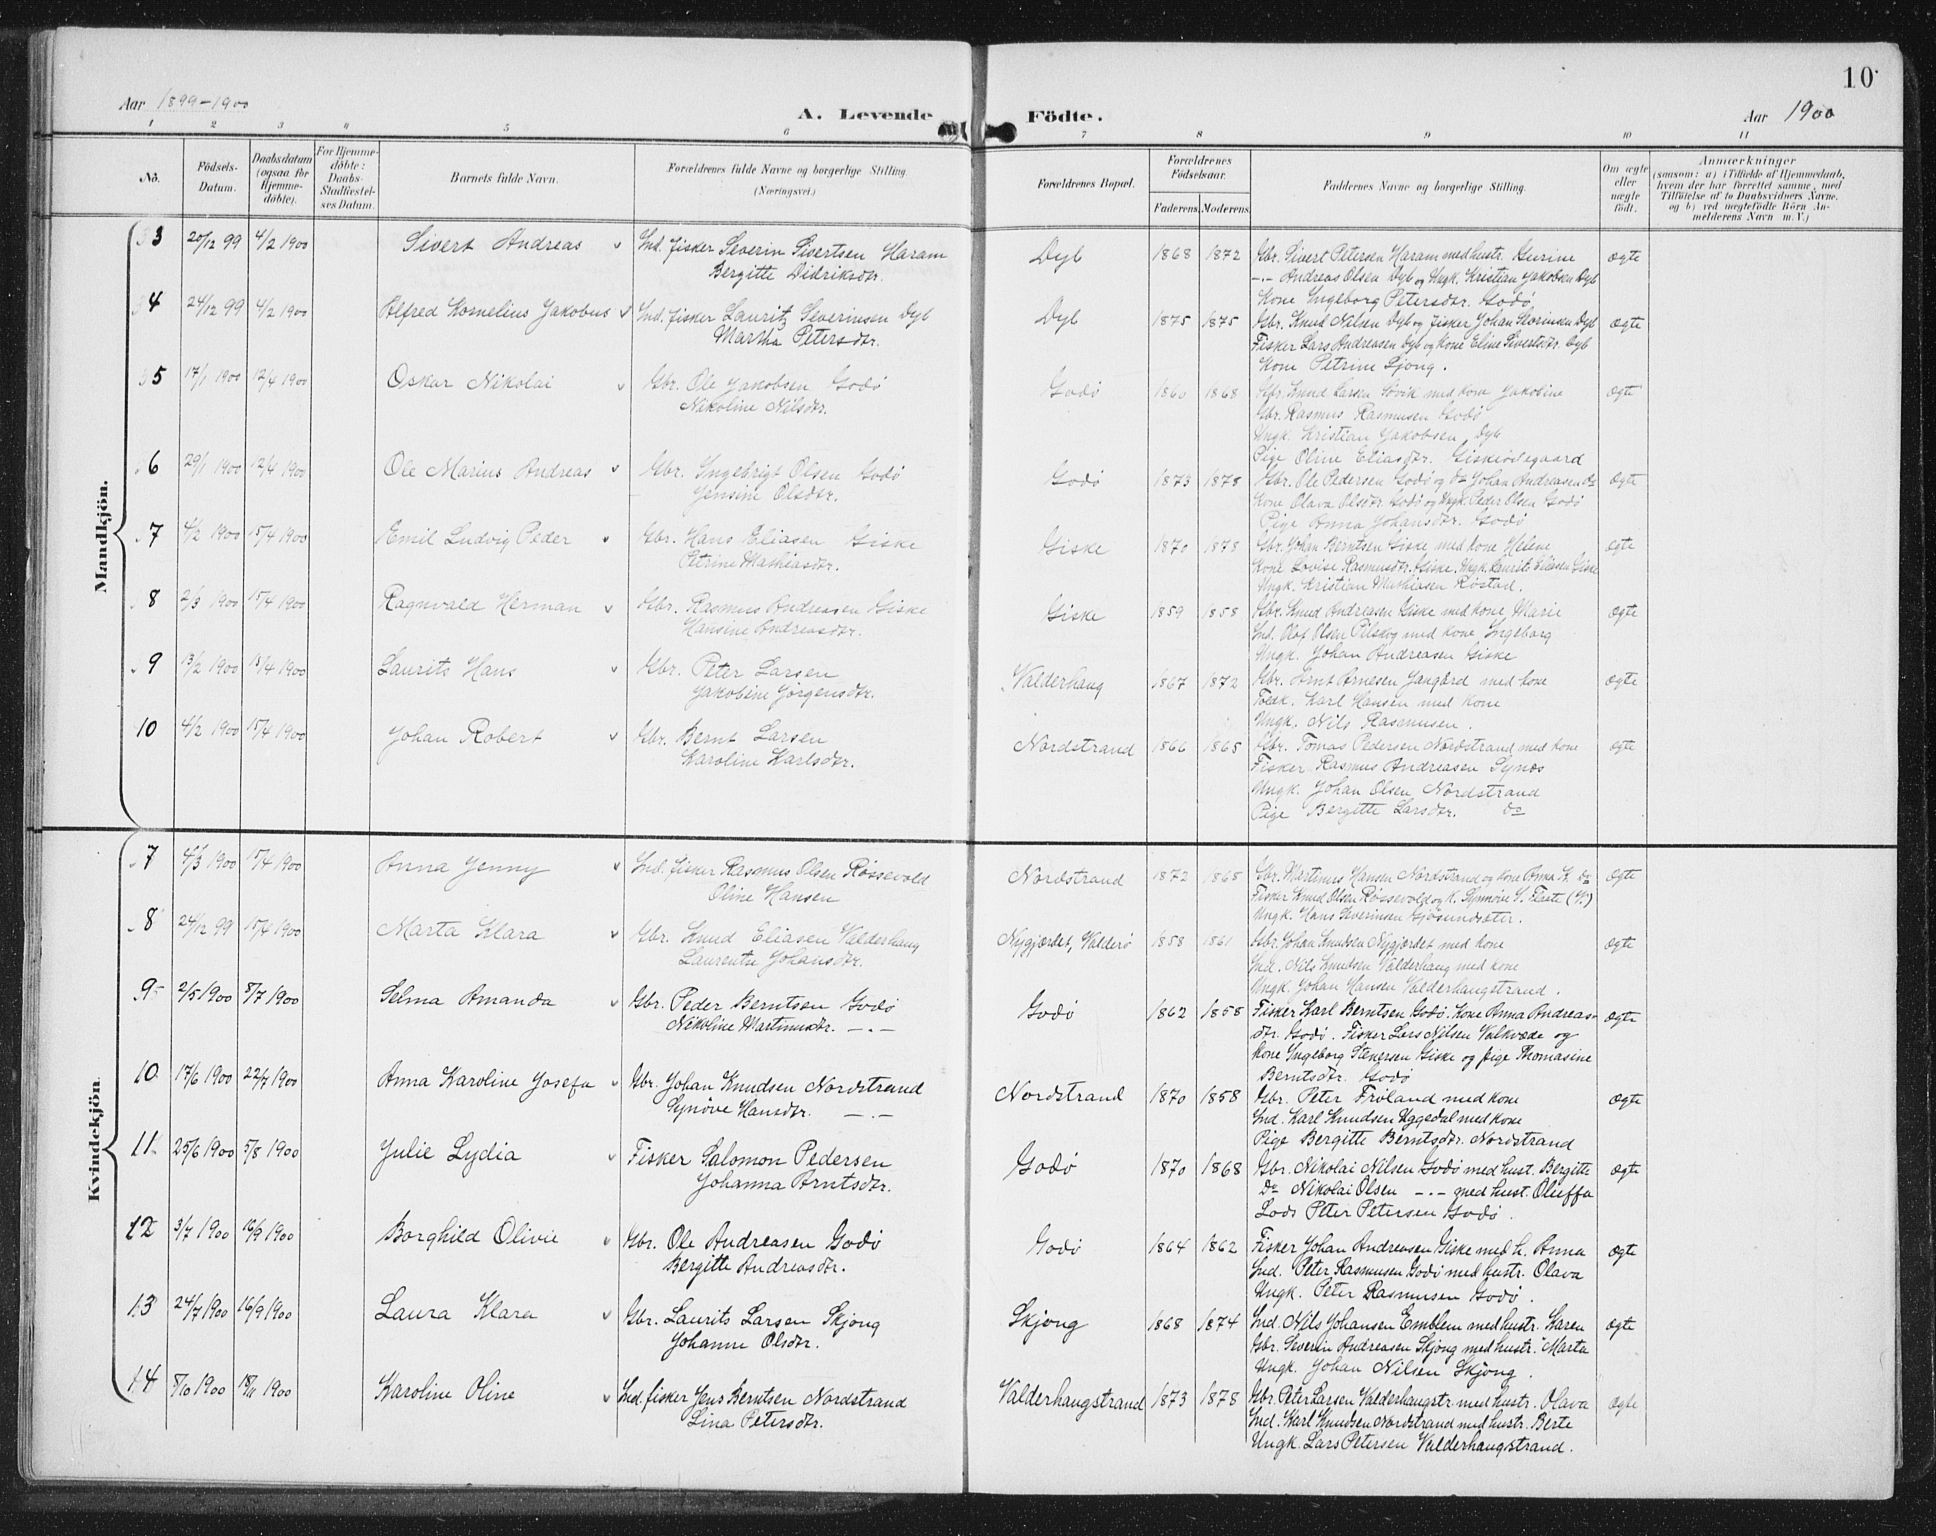 10
Aar 1899-1900
A. Levende Födte.
Aar 1900
1 2 3 4 5 6 7 8 9 10 11
No.
Födsels-Datum.
Daabsdatum (ogsaa for Hjemme-döbte).
For Hjemme-döbte: Daabs-Stadfæstel-ses Datum.
Barnets fulde Navn.
Forældrenes fulde Navne og borgerlige Stilling. (Næringsvei.)
Forældrenes Bopæl.
Forældrenes Födselsaar.
Faderens. Moderens.
Faddernes Navne og borgerlige Stilling.
Om ægte eller uægte födt.
Anmærkninger
(saasom: a) i Tilfælde af Hjemmedaab, hvem der har forrettet samme, med Tilföielse af to Daabsvidners Navne, og b) ved uægtefödte Börn Anmelderens Navn m. V.)
Mandkjön.
3 20/12 99 4/2 1900 Sivert Andreas Ind. fisker Severin Sivertsen Haram Dyb 1868 1872 Gbr. Sivert Petersen Haram med hustr. Gurine ægte
Bergitte Didriksdtr. -.- Andreas Olsen Dyb og Ungk. Kristian Jakobsen Dyb
Kone Ingeborg Petersdtr. Godø
4 24/12 99 4/2 1900 Alfred Kornelius Jakobus Ind. fisker Lauritz Severinsen Dyb Dyb 1875 1875 Gbr. Knud Nilsen Dyb og fisker Johan Severinsen Dyb ægte
Martha Petersdtr. Fisker Lars Andreasen Dyb og kone Eline Sivertsdtr. Dyb
Kone Petrine Skjong.
5 17/1 1900 12/4 1900 Oskar Nikolai Gbr. Ole Jakobsen Godø Godø 1860 1868 Gbr. Knud Larsen Søvik med kone Jakobine ægte
Nikoline Nilsdtr. Gbr. Rasmus Rasmusen Godø
Ungk. Kristian Jakobsen Dyb
Pige Oline Eliasdtr. Giskeødegaard
6 29/1 1900 12/4 1900 Ole Marius Andreas Gbr. Ingebrigt Olsen Godø Godø 1873 1878 Gbr. Ole Pedersen Godø og do Johan Andreasen do ægte
Jensine Olsdtr. Kone Olava Olsdtr. Godø og Ungk. Peder Olsen Godø
Pige Anna Johansdtr. Godø
7 4/2 1900 15/4 1900 Emil Ludvig Peder Gbr. Hans Eliasen Giske Giske 1870 1878 Gbr. Johan Berntsen Giske med kone Helene ægte
Petrine Mathiasdtr. Kone Lovise Rasmusdtr. Giske. Ungk. Laurits Eliasen Giske
Ungk. Kristian Mathiasen Røstad.
8 2/3 1900 15/4 1900 Ragnvald Herman Gbr. Rasmus Andreasen Giske Giske 1859 1858 Gbr. Knud Andreasen Giske med kone Marie ægte
Hansine Andreasdtr. Ind. Olaf Olsen Pilskog med kone Ingeborg
Ungk. Johan Andreasen Giske
9 13/2 1900 15/4 1900 Laurits Hans Gbr. Peter Larsen Valderhaug 1867 1872 Gbr. Arnt Arnesen Jangård med kone ægte
Jakobine Jørgensdtr. Fødk. Karl Hansen med kone
Ungk. Nils Rasmusen.
10 4/2 1900 15/4 1900 Johan Robert Gbr. Bernt Larsen Nordstrand 1866 1865 Gbr. Tomas Pedersen Nordstrand med kone ægte
Karoline Karlsdtr. Fisker Rasmus Andreasen Synes
Ungk. Johan Olsen Nordstrand
Pige Bergitte Larsdtr. do
Kvindekjön.
7 4/3 1900 15/4 1900 Anna Jenny Ind. fisker Rasmus Olsen Røssevold Nordstrand 1872 1868 Gbr. Martinus Hansen Nordstrand og kone Anna K. do ægte
Oline Hansen Fisker Knud Olsen Røssevold og k. Synnøve S. Flaate (V.)
Ungk. Hans Severinsen Gjøsundsæter.
8 24/12 99 15/4 1900 Marta Klara Gbr. Knud Eliasen Valderhaug Nygjærdet, Valderø 1858 1861 Gbr. Johan Knudsen Nygjærdet med kone ægte
Laurentse Johansdtr. Ind. Nils Knudsen Valderhaug med kone
Ungk. Johan Hansen Valderhaugstrand.
9 2/5 1900 8/7 1900 Selma Amanda Gbr. Peder Berntsen Godø Godø 1862 1858 Fisker Karl Berntsen Godø. Kone Anna Andreas- ægte
Nikoline Martinusdtr. -.- dtr. Godø. Fisker Lars Nilsen Valkvæde og
kone Ingeborg Stenersen Giske og pige Thomasine
Berntsdtr. Godø
10 17/6 1900 22/7 1900 Anna Karoline Josefa Gbr. Johan Knudsen Nordstrand Nordstrand 1870 1858 Gbr. Peter Frøland med kone ægte
Synøve Hansdtr. -.- Ind. Karl Knudsen Uggedal med kone
Pige Bergitte Berntsdtr. Nordstrand
11 25/6 1900 5/8 1900 Julie Lydia Fisker Salomon Pedersen Godø 1870 1868 Gbr. Nikolai Nilsen Godø med hust. Bergitte ægte
Johanna Arntsdtr. Do Nikolai Olsen -.- med hust. Oluffa
Lods Peter Petersen Godø.
12 3/7 1900 16/9 1900 Borghild Olivie Gbr. Ole Andreasen Godø Godø 1864 1862 Fisker Johan Andreasen Giske med h. Anna ægte
Bergitte Andreasdtr. Ind. Peter Rasmusen Godø med hustr. Olava
Ungk. Peter Rasmusen Godø.
13 24/7 1900 16/9 1900 Laura Klara Gbr. Laurits Larsen Skjong Skjong 1868 1874 Ind. Nils Johansen Emblem med hustr. Karen ægte
Johanne Olsdtr. Gbr. Severin Andreasen Skjong med hustr. Marta
Ungk. Johan Nilsen Skjong.
14 8/10 1900 18/11 1900 Karoline Oline Ind. fisker Jens Berntsen Nordstrand Valderhaugstrand 1873 1878 Gbr. Peter Larsen Valderhaugstr. med hustr. Olava ægte
Lina Petersdtr. Ind. Karl Knudsen Nordstrand med hustr. Berte
Ungk. Lars Petersen Valderhaugstrand.